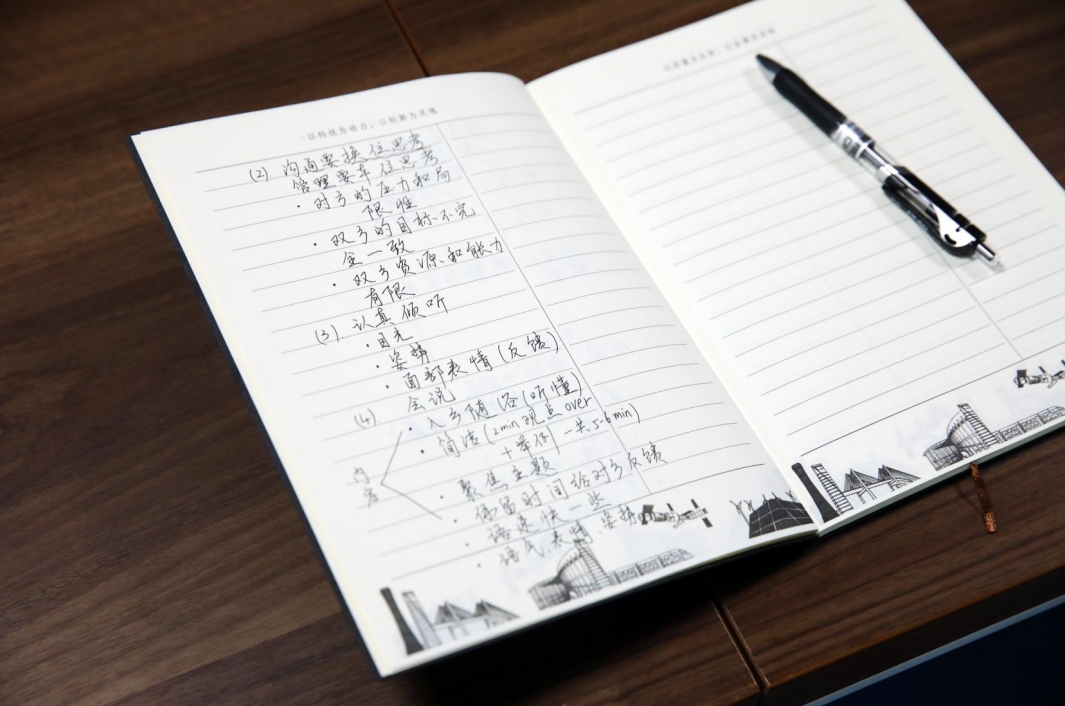 以科技为动力；以创新为灵魂
(2). 沟通要换位思考
管理要车位思考
· 对方的压力和局
限性
· 双方的目标不完
全一致
· 双方资源和能力
有限
(3). 认真倾听
· 目光
· 姿势
· 面部表情(反馈)
(4). 会说
· 入乡随俗(听懂)
· 简洁(2min观点over
+举例)一共5-6min)
内容
· 聚焦主题
· 保留时间给对方反馈
· 语速快一些
· 语气.表情.姿势